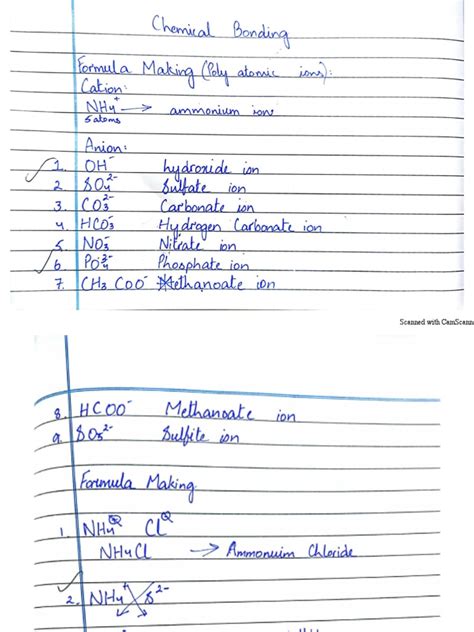 Chemical Bonding
Formula Making (Poly atomic ions):
Cation:
NH4+ → ammonium ion
5 atoms
Anion:
1. OH- hydroxide ion
2 SO4 2- Sulfate ion
3. CO3 2- Carbonate ion
4. HCO3- Hydrogen Carbonate ion
5 NO3- Nitrate ion
6 PO4 3- Phosphate ion
7. CH3COO- Methanoate ion
Scanned with CamScann
8. HCOO- Methanoate ion
9. SO3 2- Sulfite ion
Formula Making
1. NH4+ Cl-
NH4Cl → Ammonuim Chloride
2. NH4+ S2-